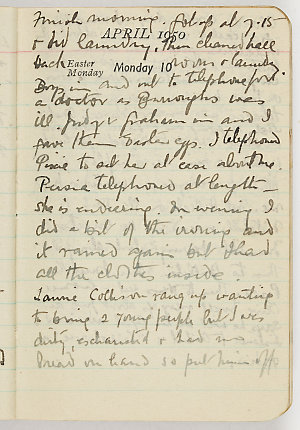 Irish morning. Got up at 7.15
& did laundry. Then cleaned hall
APRIL 1950
back rooms & laundry
Easter Monday Monday 10
in and out to telephone for
a doctor as Burroughs was
ill. Judy & Graham in and I
gave them Easter eggs. I telephoned
Pixie to set her at ease about me.
Persia telephoned at length –
she is endearing. In evening I
did a bit of the ironing and
it rained again but I had
all the clothes inside
Laurie Collison rang up wanting
to bring 2 young people but I was
dirty, exhausted & had no
bread on hand so put him off